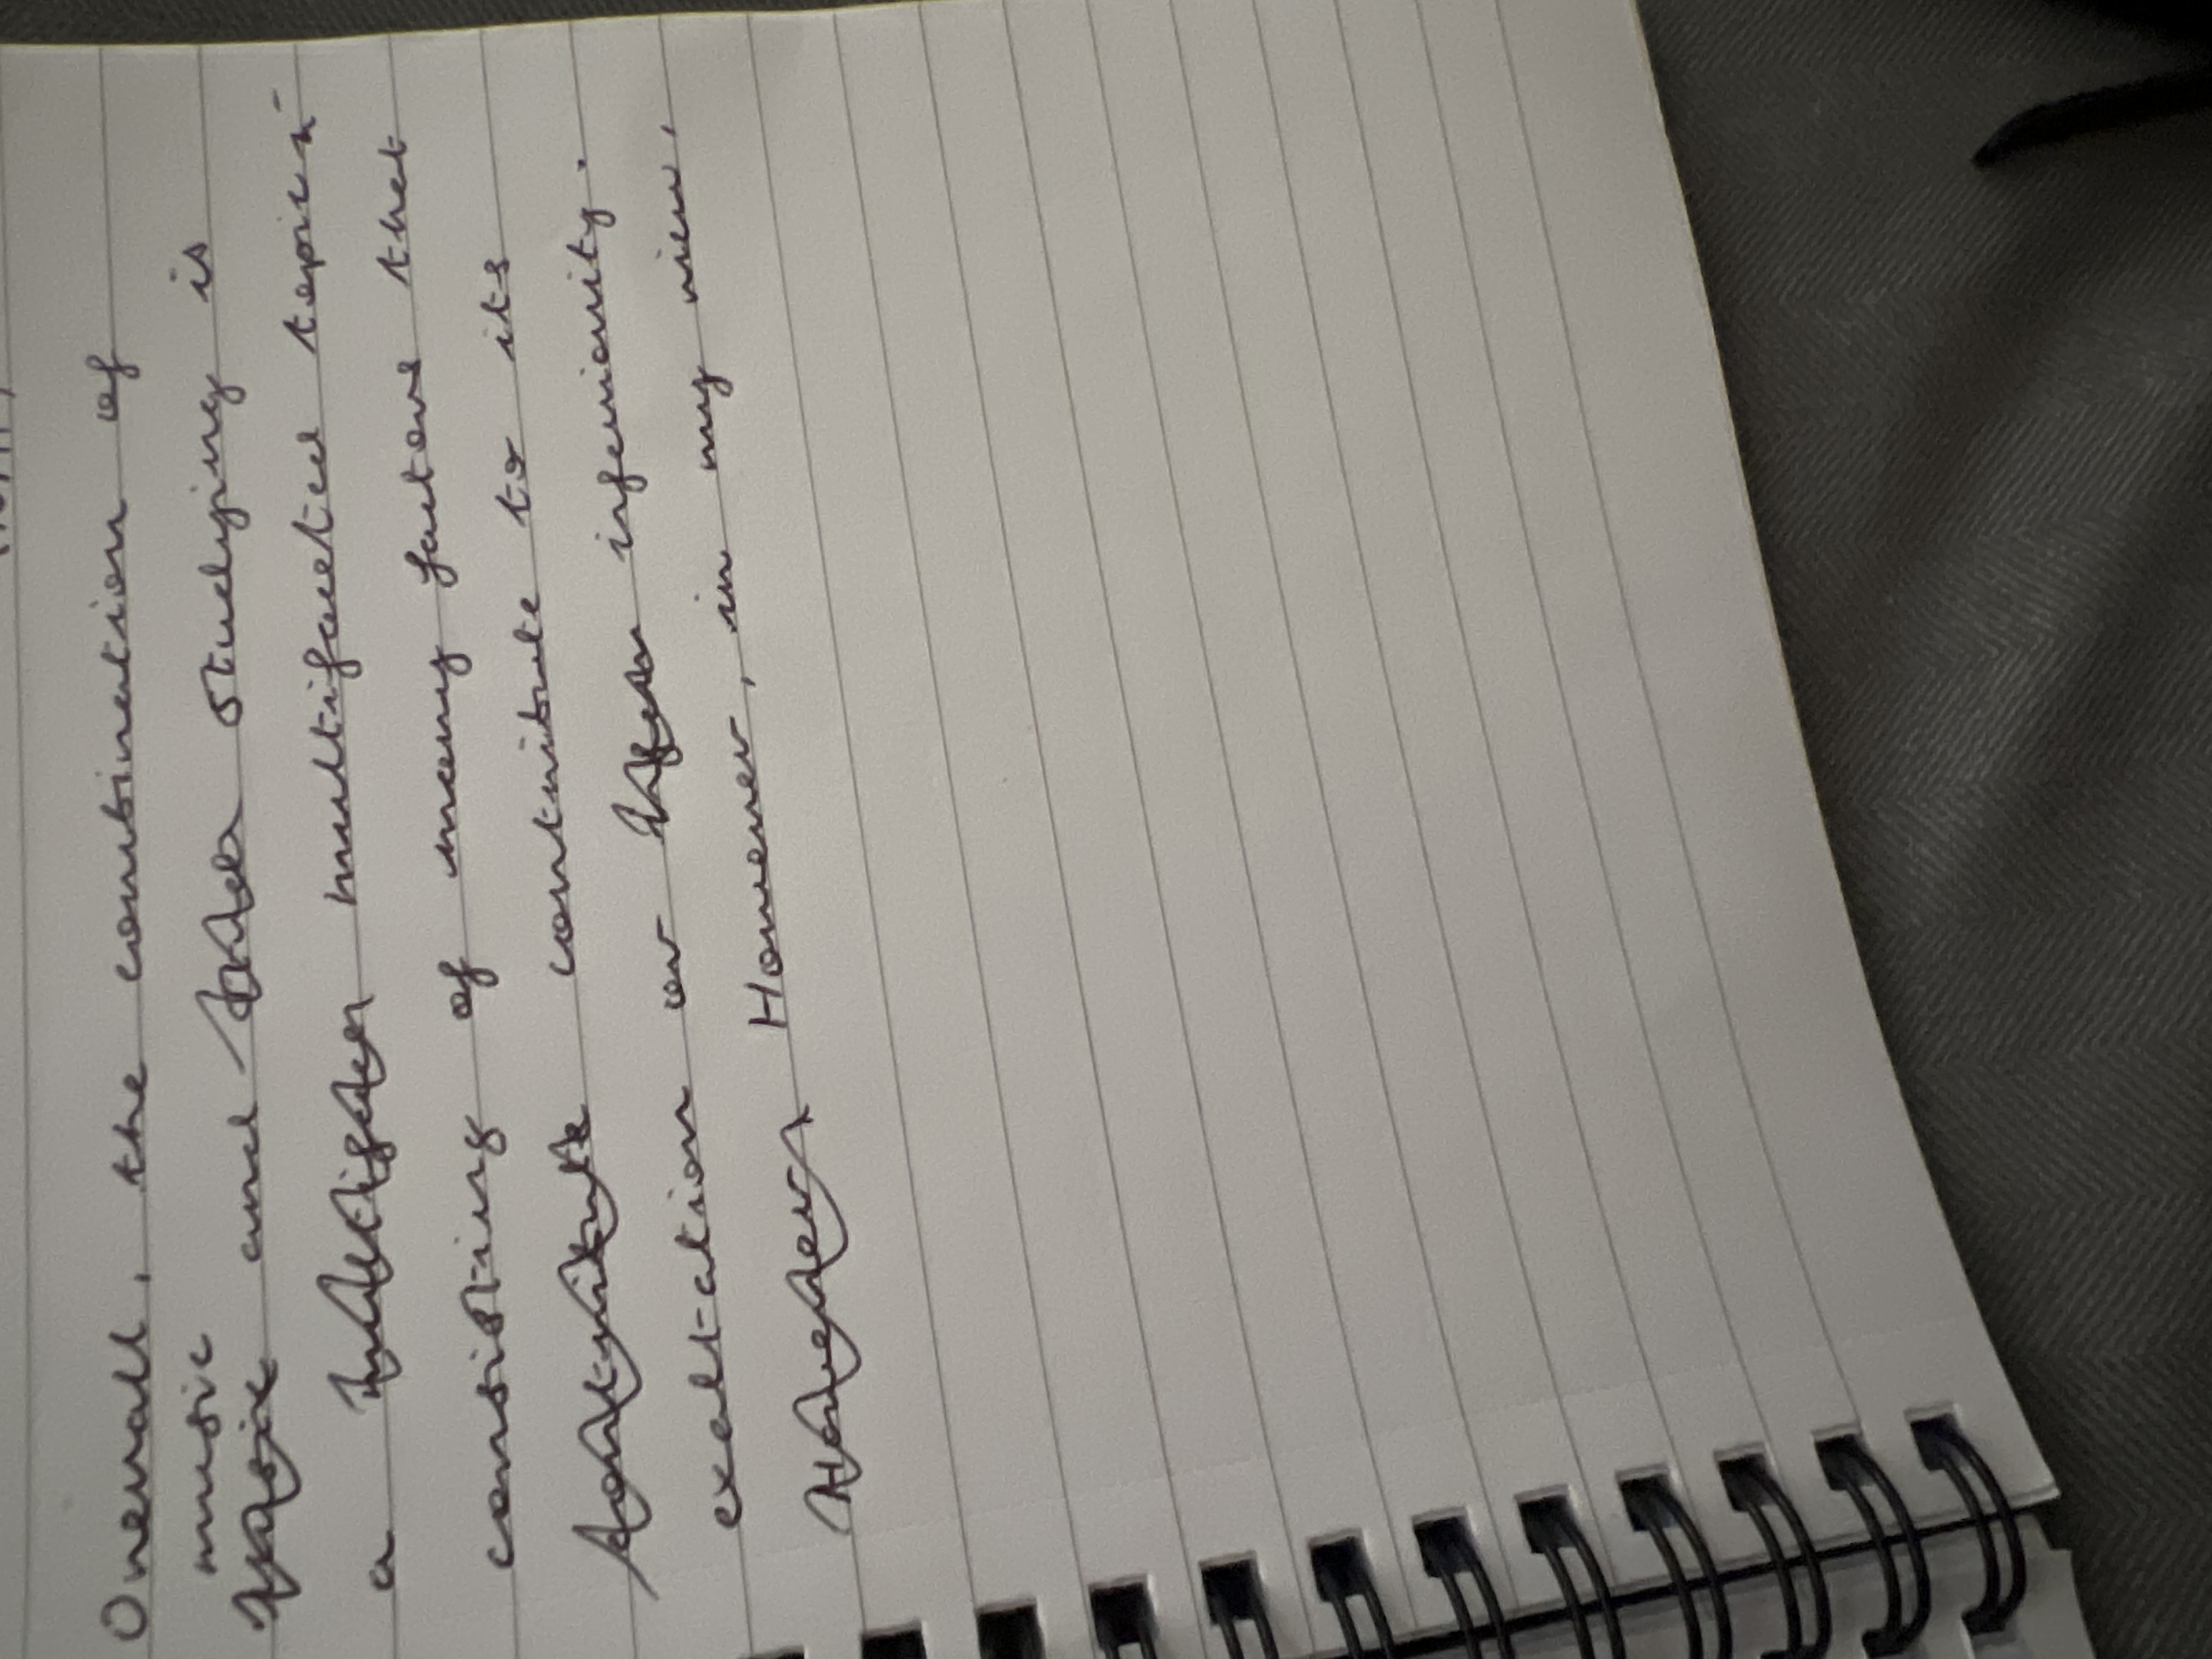 Overall, the combination of
music
and studying is
a multifaceted topic -
consisting of many factors that
contribute to its
exaltation or inferiority.
However, in my view,